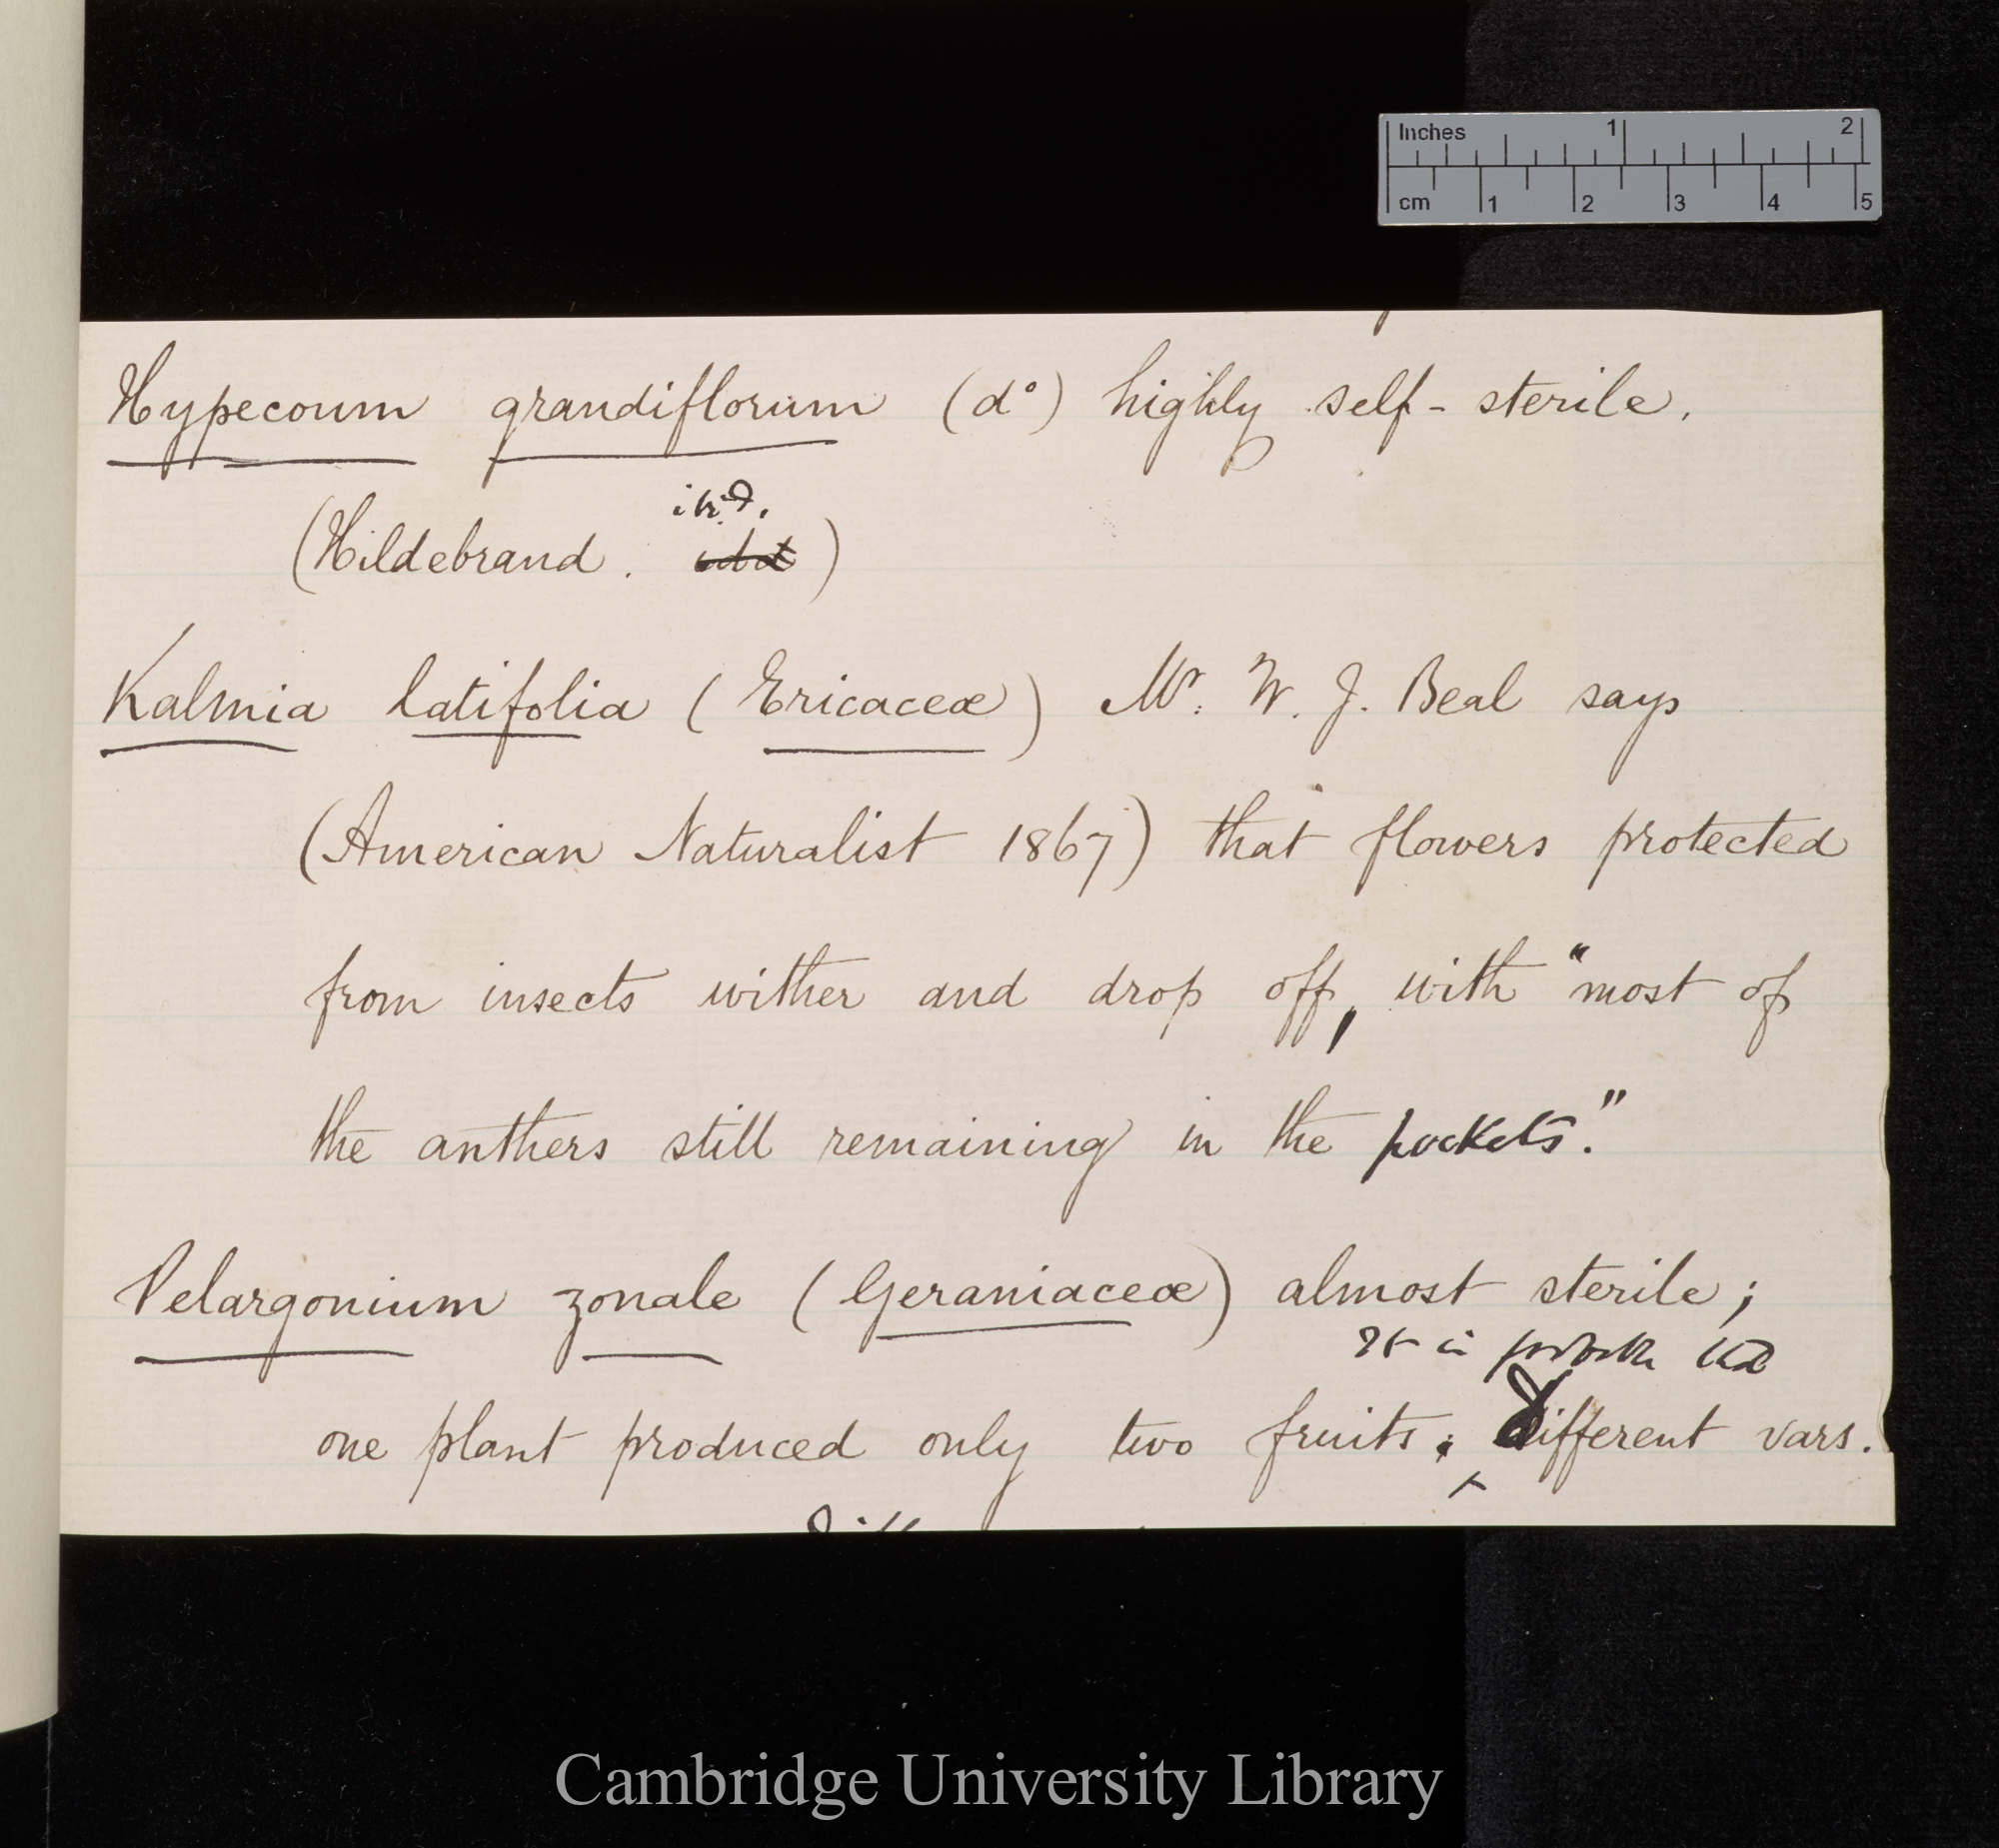 Inches 1 2
cm 1 2 3 4 5
Hypecoum grandiflorum (do) highly self-sterile.
ibid.
(Hildebrand. )
Kalmia latifolia (Ericaceæ) Mr. W. J. Beal says
(American Naturalist 1867) that flowers protected
from insects wither and drop off, with "most of
the anthers still remaining in the pockets."
Pelargonium zonale (Geraniaceæ) almost sterile;
It is probable that
one plant produced only two fruits. Different vars.
Cambridge University Library